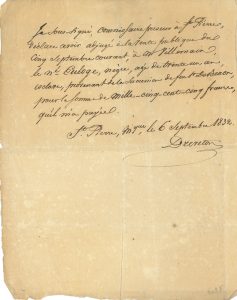 Je soussigné commissaire priseur à St. Pierre,
déclare avoir adjugé à la vente publique du
cinq Septembre courant, à Mr. Villonnain
le né. Euloge, nègre, agé de trente un ans,
esclave, provenant de la succession de feu
pour la somme de Mille cinq cent cinq francs,
qu'il m'a payée.
St. Pierre, Mque. le 6 Septembre 1832.